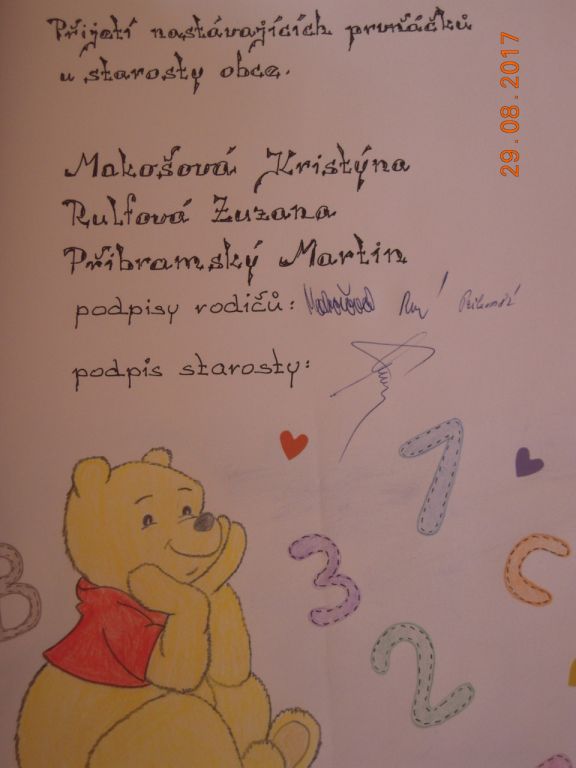 Přijetí nastávajících prvňáčků
u starosty obce.
29.08.2017
Makošová Kristýna
Rulfová Zuzana
Příbramský Martin
podpisy rodičů: Makošová
podpis starosty:
1
3
B
C
2